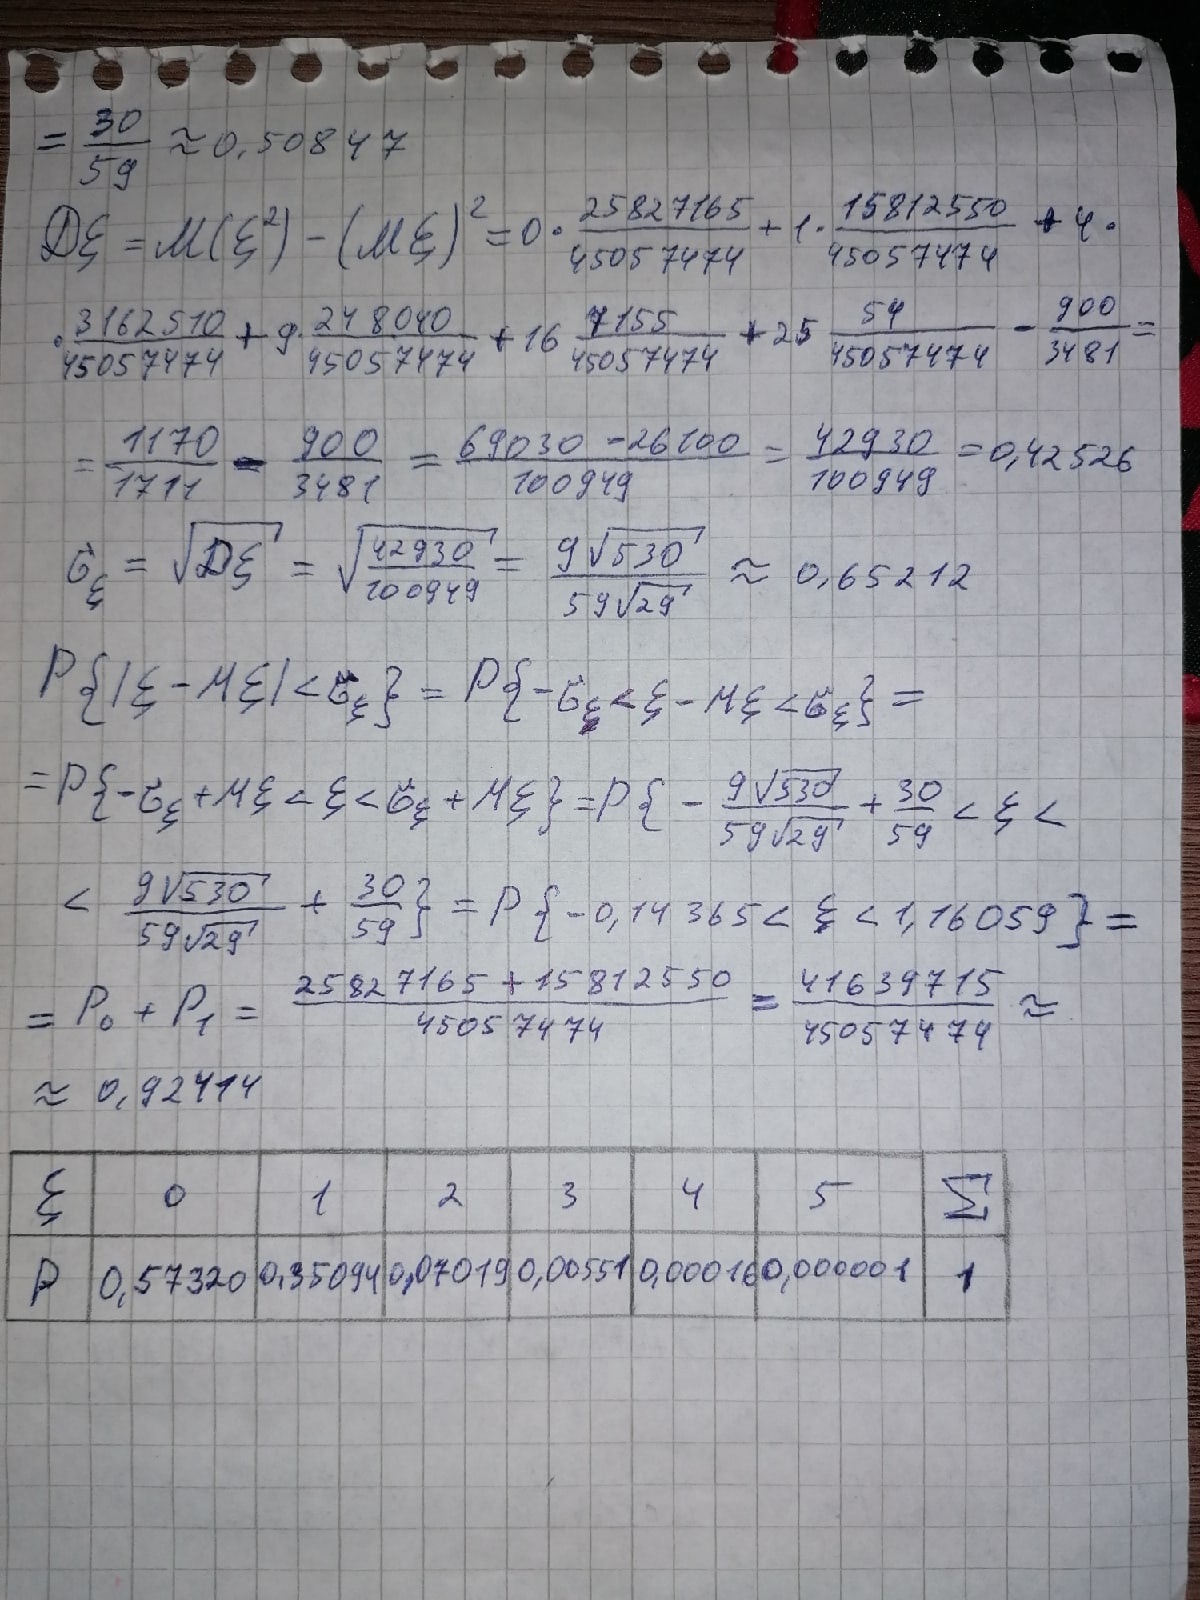 = 30/59 ≈ 0,50847
Dξ = M(ξ²) − (Mξ)² = 0 · 25827165/45057474 + 1 · 15812550/45057474 + 4 ·
· 3162510/45057474 + 9 · 248040/45057474 + 16 7155/45057474 + 25 54/45057474 − 900/3481 =
= 1170/1711 − 900/3481 = 69030 − 26100/100949 = 42930/100949 = 0,42526
σξ = √Dξ = √42930/100949 = 9√530/59√29 ≈ 0,65212
P{|ξ − Mξ| < σξ} = P{−σξ < ξ − Mξ < σξ} =
= P{−σξ + Mξ < ξ < σξ + Mξ} = P{− 9√530/59√29 + 30/59 < ξ <
< 9√530/59√29 + 30/59} = P{−0,14365 < ξ < 1,16059} =
= P₀ + P₁ = 25827165 + 15812550/45057474 = 41639715/45057474 ≈
≈ 0,92414
ξ 0 1 2 3 4 5 Σ
P 0,57320 0,35094 0,07019 0,00551 0,00016 0,000001 1